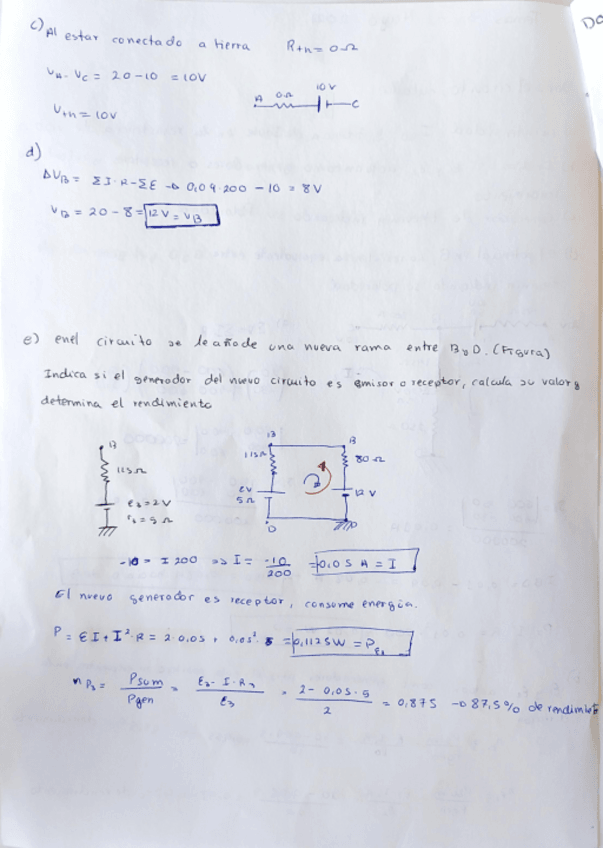 DO
c) Al estar conectado a tierra Rth = 0Ω
VA - VC = 20-10 = 10V
A 0Ω 10V C
Vth = 10V
d)
ΔVB = ΣI·R-ΣE → 0,09·200 - 10 = 8V
VB = 20 - 8 = 12V = VB
e) enel circuito se le añade una nueva rama entre B y D. (Figura)
Indica si el generador del nuevo circuito es emisor o receptor, calcula su valor y
determina el rendimiento
B
115Ω
ε3=2V
r3=5Ω
B B
115Ω 80Ω
2V 12V
5Ω
D D
-10 = I 200 => I = -10/200 = 0,05 A = I
El nuevo generador es receptor, consume energía.
P = εI + I²·R = 2·0,05 + 0,05²·5 = 0,1125W = Pε3
η P3 = Psum/Pgen = ε3 - I·R3/ε3 = 2 - 0,05·5/2 = 0,875 → 87,5% de rendimiento